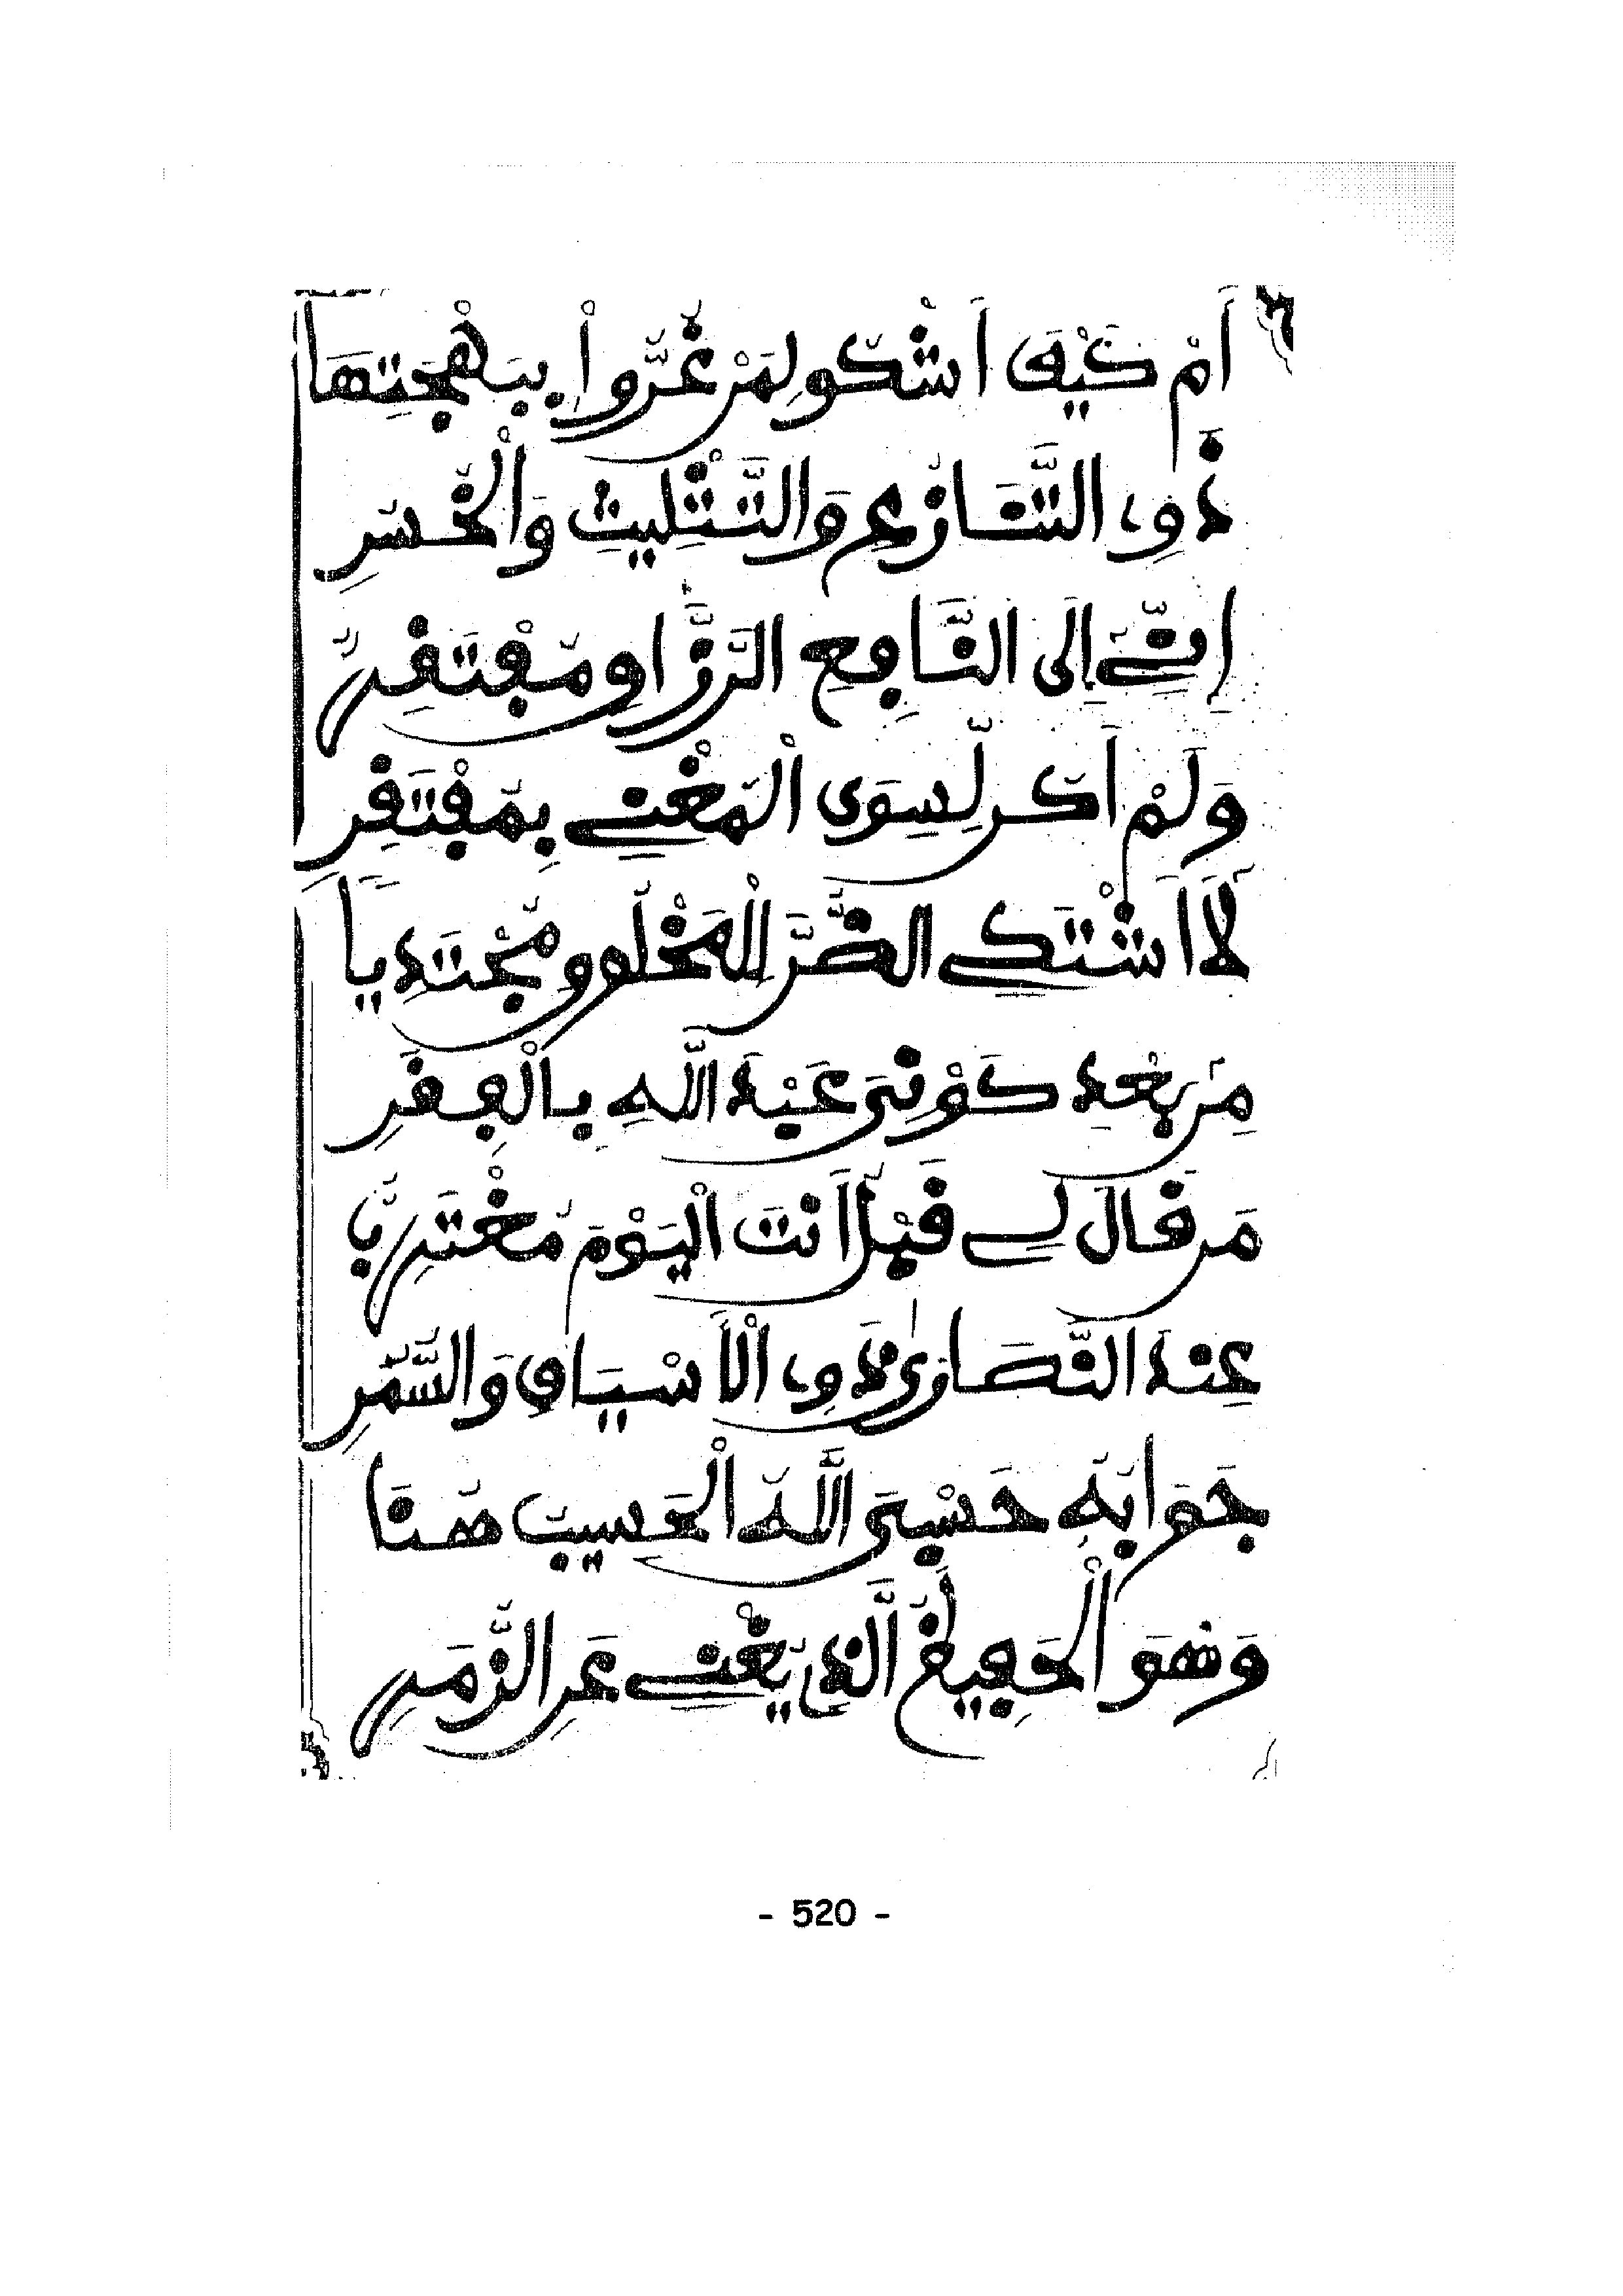 اَمْ كَيْفَ اَشْكُو لِمَنْ غُرُّوا بِبَهْجَتِهَا
ذَوِى التَّنَازُعِ وَالتَّثْلِيثِ وَالْخُسُرِ
اِنِّى اِلَى النَّافِعِ الرَّزَّاقِ مُفْتَقِرٌ
وَلَمْ اَكُنْ لِسِوَى الْمُغْنِى بِمُفْتَقِرِ
لَا اَشْتَكِى الضُّرَّ لِلْمَخْلُوقِ مُجْتَدِيًا
مِنْ بَعْدِ كَوْنِىَ عَبْدَ اللَّهِ بِالْفِقَرِ
مَنْ قَالَ لِى قَبْلُ اَنْتَ الْيَوْمَ مُغْتَرِبٌ
عِنْدَ النَّصَارَى ذَوِى الْاَسْيَافِ وَالسُّمُرِ
جَوَابُهُ حَسْبِىَ اللَّهُ الْحَسِيبُ هُنَا
وَهْوَ الْحَفِيظُ الَّذِى يُغْنِى عَنِ الزُّمَرِ
- 520 -